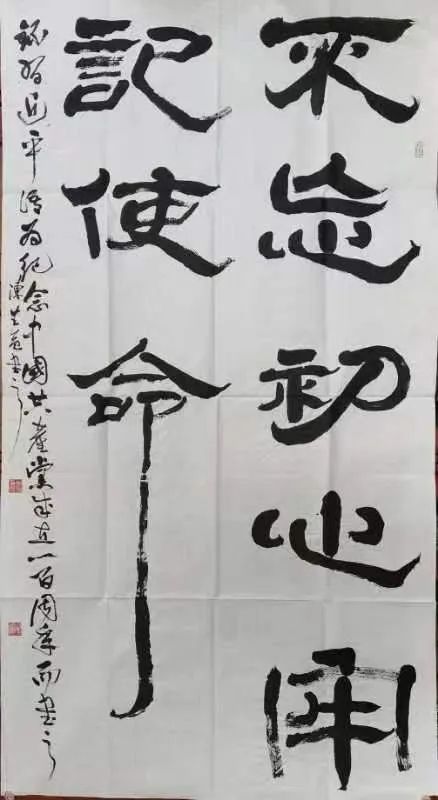 不忘初心牢
記使命
錄習近平語為紀念中國共產黨成立一百周年而書之
陳書之